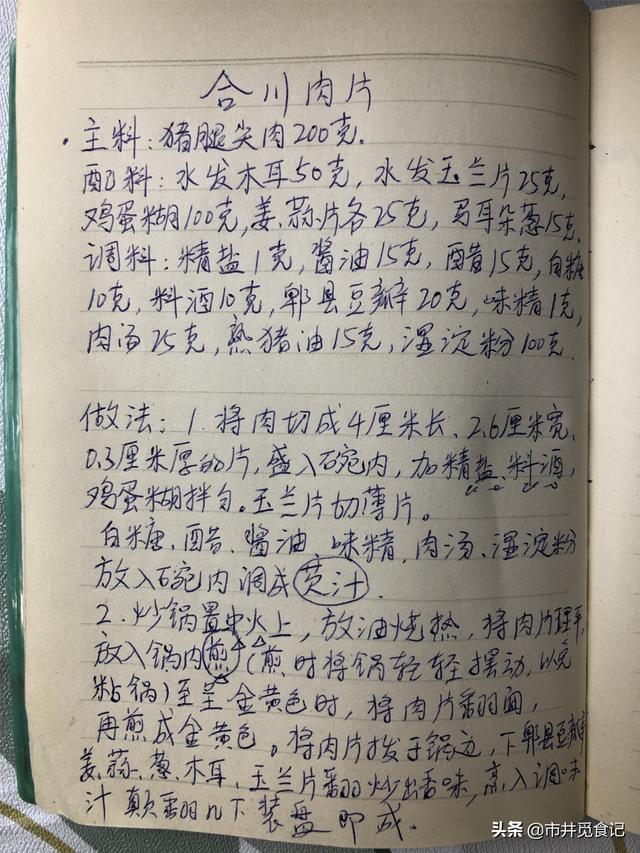 合川肉片
主料:猪腿尖肉200克.
配料:水发木耳50克,水发玉兰片25克,
鸡蛋糊100克,姜、蒜片各25克,马耳朵葱15克.
调料:精盐1克,酱油15克,醋15克,白糖
10克,料酒10克,郫县豆瓣20克,味精1克,
肉汤25克,熟猪油15克,湿淀粉100克.
做法:1.将肉切成4厘米长、2.6厘米宽、
0.3厘米厚的片,盛入碗内,加精盐、料酒,
鸡蛋糊拌匀。玉兰片切薄片。
白糖、醋、酱油、味精、肉汤、湿淀粉
放入碗内调成芡汁.
2.炒锅置中火上,放油烧热,将肉片理平,
放入锅内煎(煎时将锅轻轻摆动,以免
粘锅)至呈金黄色时,将肉片翻面,
再煎成金黄色。将肉片拨于锅边,下郫县豆瓣
姜、蒜、葱、木耳、玉兰片翻炒出香味,烹入调味
汁颠翻几下装盘即成.
头条 @市井觅食记